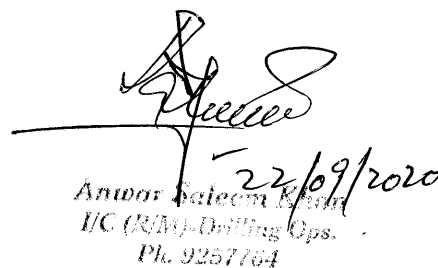 22/09/2020
Anwar Saleem Khan
I/C (R/M)-Drilling Ops.
Ph. 9257764